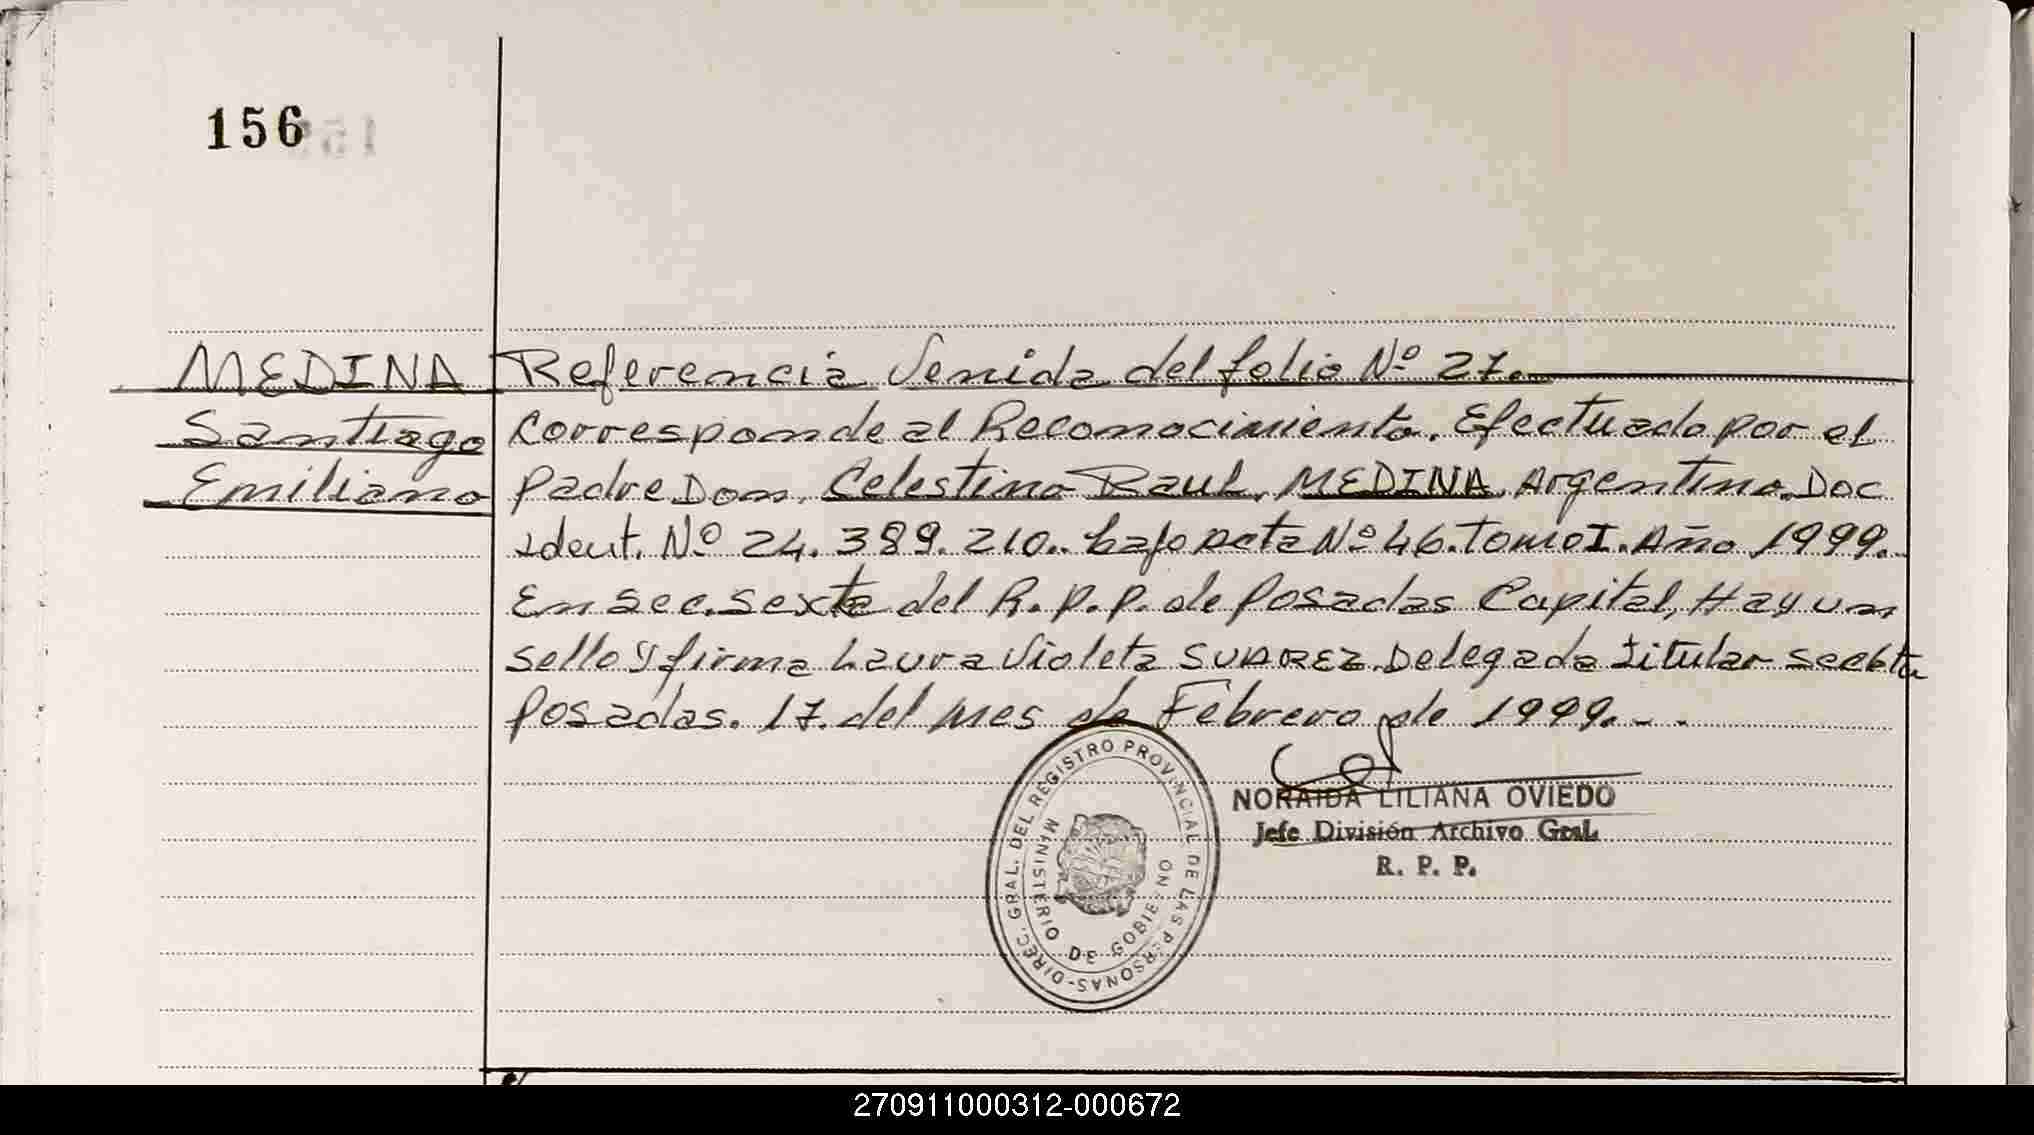 156
MEDINA
Santiago
Emiliano
Referencia Venida del folio Nº 27.
Corresponde al Reconocimiento. Efectuado por el
Padre Don. Celestino Raul. MEDINA. Argentino. Doc
Ident. Nº 24.389.210.. bajo acta Nº 46. Tomo I. Año 1999.
En Sec. Sexta del R.P.P. de Posadas Capital, Hay un
sello y firma Laura Violeta SUAREZ. Delegada Titular
Posadas. 17. del mes de Febrero de 1999. - .
DIREC. GRAL. DEL REGISTRO PROVINCIAL DE LAS PERSONAS-
MINISTERIO DE GOBIERNO
NORAIDA LILIANA OVIEDO
Jefe División Archivo Gral.
R. P. P.
270911000312-000672